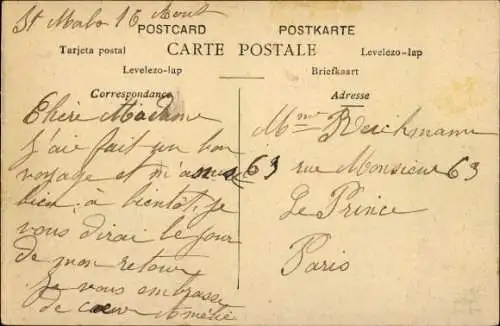 St Malo 16 Aout
POSTCARD POSTKARTE
Tarjeta postal CARTE POSTALE Levelezo-lap
Levelezo-lap Briefkaart
Correspondance
Chère Madame
J'aie fait un bon
voyage et m'amuse
bien, à bientôt, je
vous dirai le jour
de mon retour
Je vous embrasse
de cœur Amélie
Adresse
Mme Reichmann
63 rue Monsieur 63
Le Prince
Paris